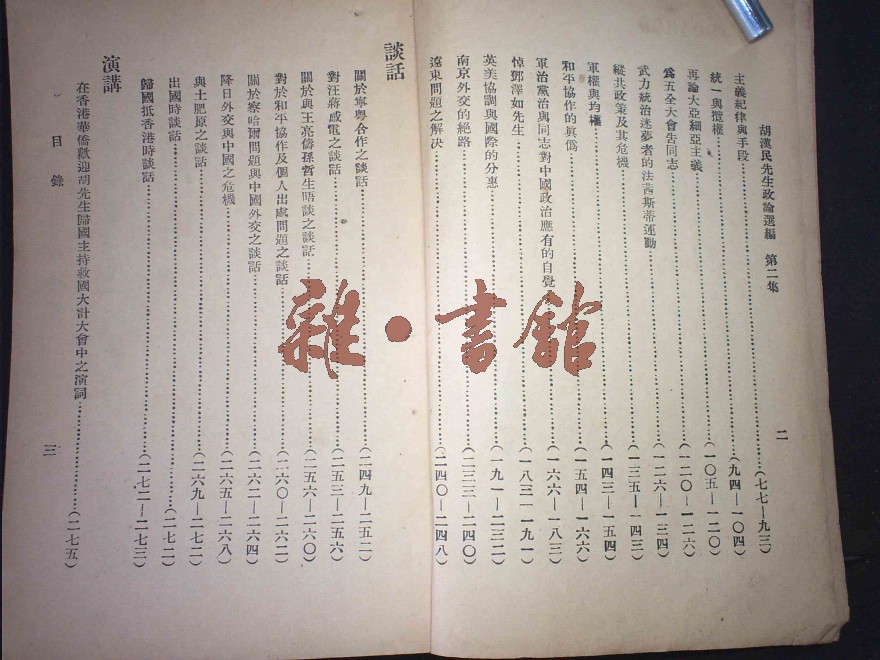 胡漢民先生政論選編　第二集
二
主義紀律與手段……(七七—九三)
統一與攬權……(九四—一〇四)
再論大亞細亞主義……(一〇五—一二〇)
爲五全大會告同志……(一二〇—一二六)
武力統治迷夢者的法茜斯蒂運動……(一二六—一三四)
縱共政策及其危機……(一三五—一四三)
軍權與均權……(一四三—一五四)
和平協作的眞僞……(一五四—一六六)
軍治黨治與同志對中國政治應有的自覺……(一六六—一八三)
悼鄧澤如先生……(一八三—一九一)
英美協調與國際的分惠……(一九一—二三二)
南京外交的絕路……(二三三—二四〇)
遠東問題之解決……(二四〇—二四八)
談話
關於寧粵合作之談話……(二四九—二五二)
對汪蔣感電之談話……(二五三—二五六)
關於與王亮儔孫哲生晤談之談話……(二五六—二六〇)
對於和平協作及個人出處問題之談話……(二六〇—二六二)
關於察哈爾問題與中國外交之談話……(二六二—二六四)
降日外交與中國之危機……(二六五—二六八)
與土肥原之談話……(二六九—二七二)
出國時談話……(二七二)
歸國抵香港時談話……(二七二—二七三)
演講
在香港華僑歡迎胡先生歸國主持救國大計大會中之演詞……(二七五)
目錄
三
雜·書館